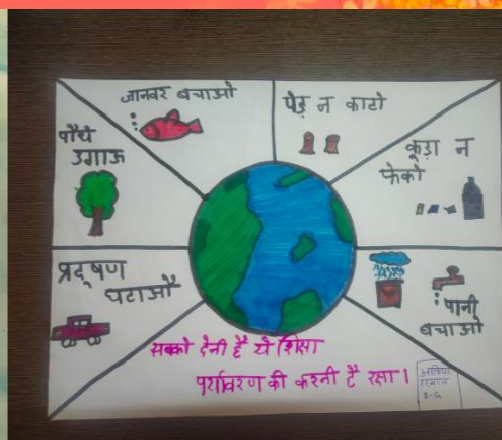 जानवर बचाओ
पेड़ न काटो
पौधे
उगाऊ
कूड़ा न
फेको
प्रदूषण
घटाओ
पानी
बचाओ
सबको देनी है ये शिक्षा
पर्यावरण की करनी है रक्षा।